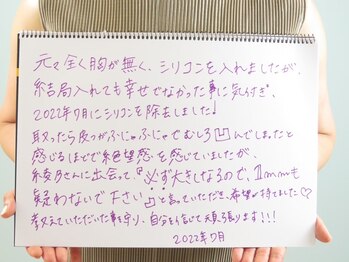 元々全く胸が無く、シリコンを入れましたが、
結局入れても幸せでなかった事に気付き、
2022年7月にシリコンを除去しました!
取ったら皮っがふにゃふにゃでむしろ凹んでしまったと
感じるほどで絶望感を感じていましたが、
さんに出会って『必ず大きくなるので、1mmも
疑わないで下さい』と言っていただき、希望が持てました♡
教えていただいた事を守り、自分を信じて頑張ります!!!
2022年7月